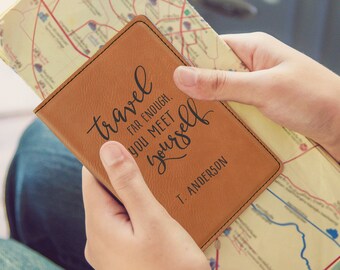 travel
FAR ENOUGH,
YOU MEET
yourself
T. ANDERSON